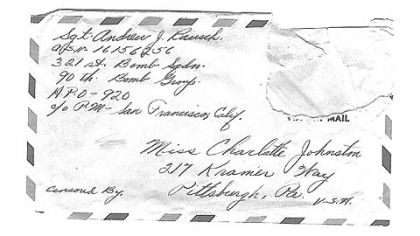 Sgt. Andrew J. Rausch.
A.S.N. 16156256
321 st. Bomb Sqdn.
90 th. Bomb Group.
A.P.O - 920
c/o P.M - San Francisco, Calif.
MAIL
Miss Charlotte Johnston
217 Kramer Way
Pittsburgh, Pa.
U.S.A.
Censored By.